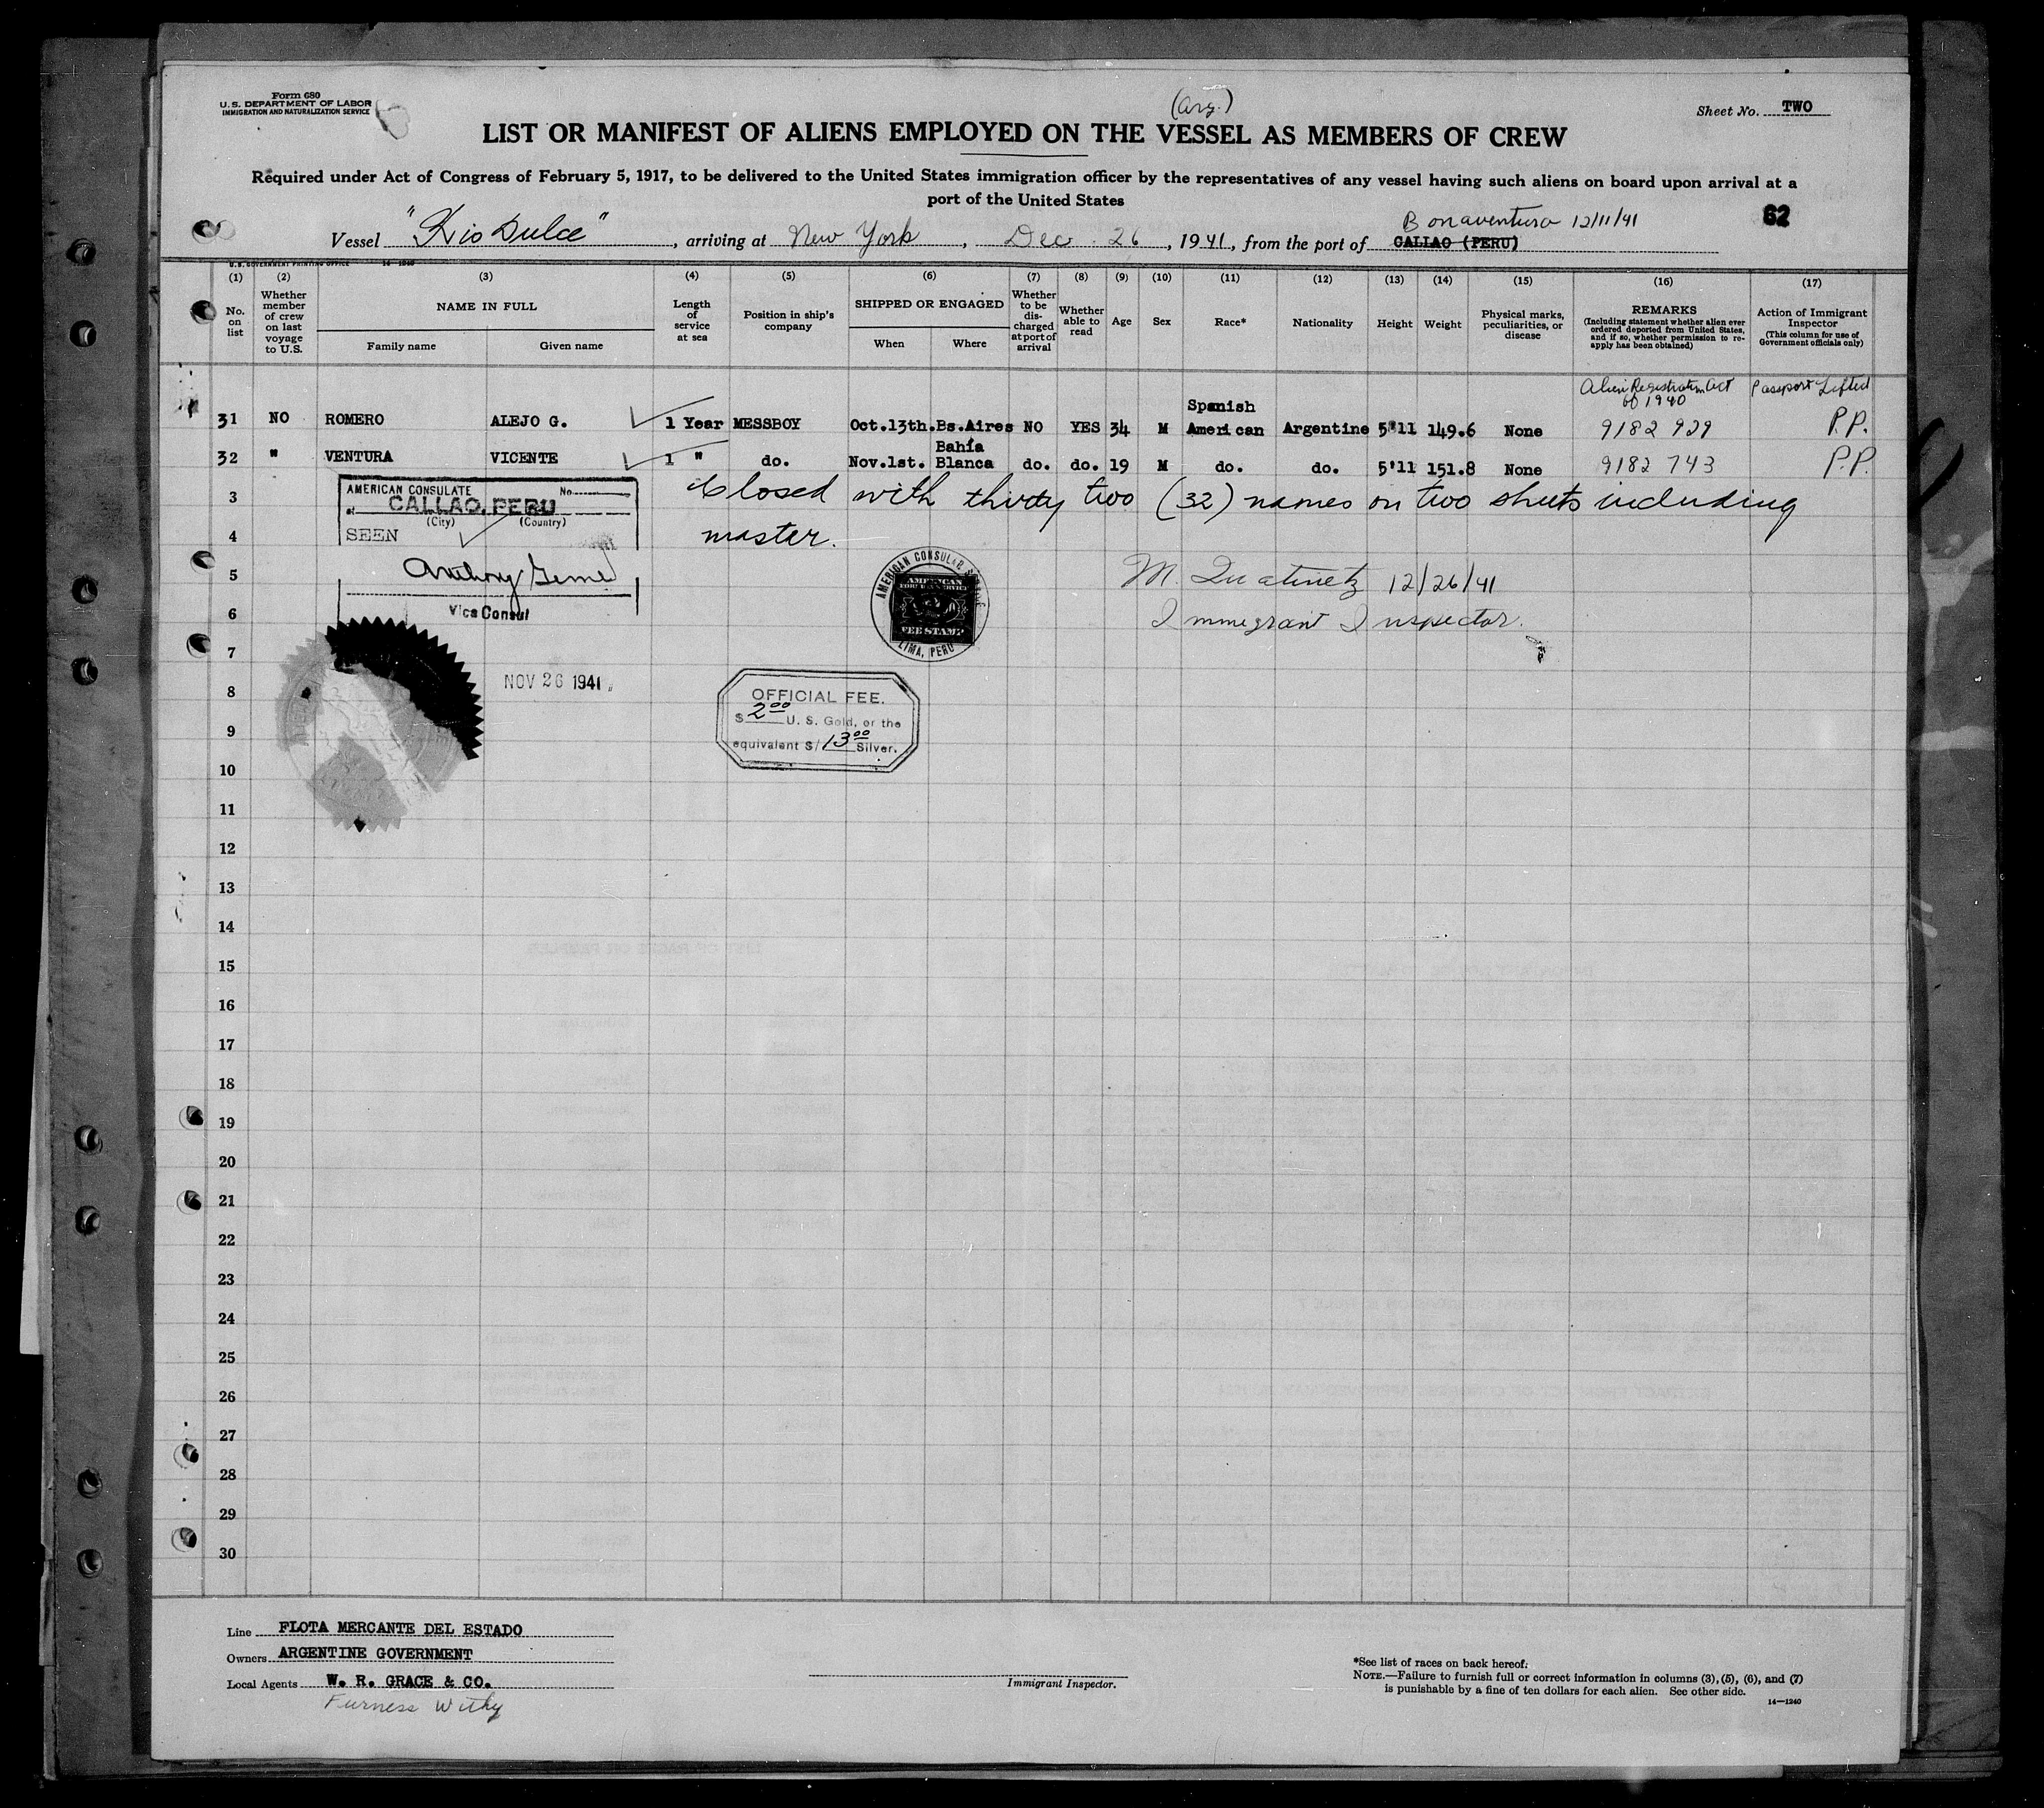 Form 680
U.S. DEPARTMENT OF LABOR
IMMIGRATION AND NATURALIZATION SERVICE
(Arg.)
Sheet No. TWO
LIST OR MANIFEST OF ALIENS EMPLOYED ON THE VESSEL AS MEMBERS OF CREW
Required under Act of Congress of February 5, 1917, to be delivered to the United States immigration officer by the representatives of any vessel having such aliens on board upon arrival at a
port of the United States
Bonaventura 12/11/41
62
Vessel "Rio Dulce", arriving at New York, Dec. 26, 1941, from the port of CALLAO (PERU)
U.S. GOVERNMENT PRINTING OFFICE 14—1240
(1) (2) (3) (4) (5) (6) (7) (8) (9) (10) (11) (12) (13) (14) (15) (16) (17)
No. on list
Whether member of crew on last voyage to U.S.
NAME IN FULL
Family name
Given name
Length of service at sea
Position in ship's company
SHIPPED OR ENGAGED
When
Where
Whether to be discharged at port of arrival
Whether able to read
Age
Sex
Race*
Nationality
Height
Weight
Physical marks, peculiarities, or disease
REMARKS
(Including statement whether alien ever ordered deported from United States, and if so, whether permission to re-apply has been obtained)
Action of Immigrant Inspector
(This column for use of Government officials only)
Alien Registration Act of 1940
Passport Lifted
31 NO ROMERO ALEJO G. 1 Year MESSBOY Oct.13th. Bs.Aires NO YES 34 M Spanish American Argentine 5'11 149.6 None 9182 929 P.P.
32 " VENTURA VICENTE 1 " do. Nov.1st. Bahía Blanca do. do. 19 M do. do. 5'11 151.8 None 9182 743 P.P.
3 Closed with thirty two (32) names on two sheets including
4 master.
AMERICAN CONSULATE No.
at CALLAO, PERU
(City) (Country)
SEEN
Vice Consul
5 12/26/41
6 Immigrant Inspector.
AMERICAN CONSULAR
AMERICAN
FEE STAMP
LIMA, PERU
7
NOV 26 1941
8
OFFICIAL FEE.
$ 2.00 U. S. Gold, or the
equivalent S/ 13.00 Silver.
9
10
11
12
13
14
15
16
17
18
19
20
21
22
23
24
25
26
27
28
29
30
Line FLOTA MERCANTE DEL ESTADO
Owners ARGENTINE GOVERNMENT
Local Agents W. R. GRACE & CO.
Furness Withy
Immigrant Inspector.
*See list of races on back hereof.
NOTE.—Failure to furnish full or correct information in columns (3), (5), (6), and (7)
is punishable by a fine of ten dollars for each alien. See other side.
14—1240